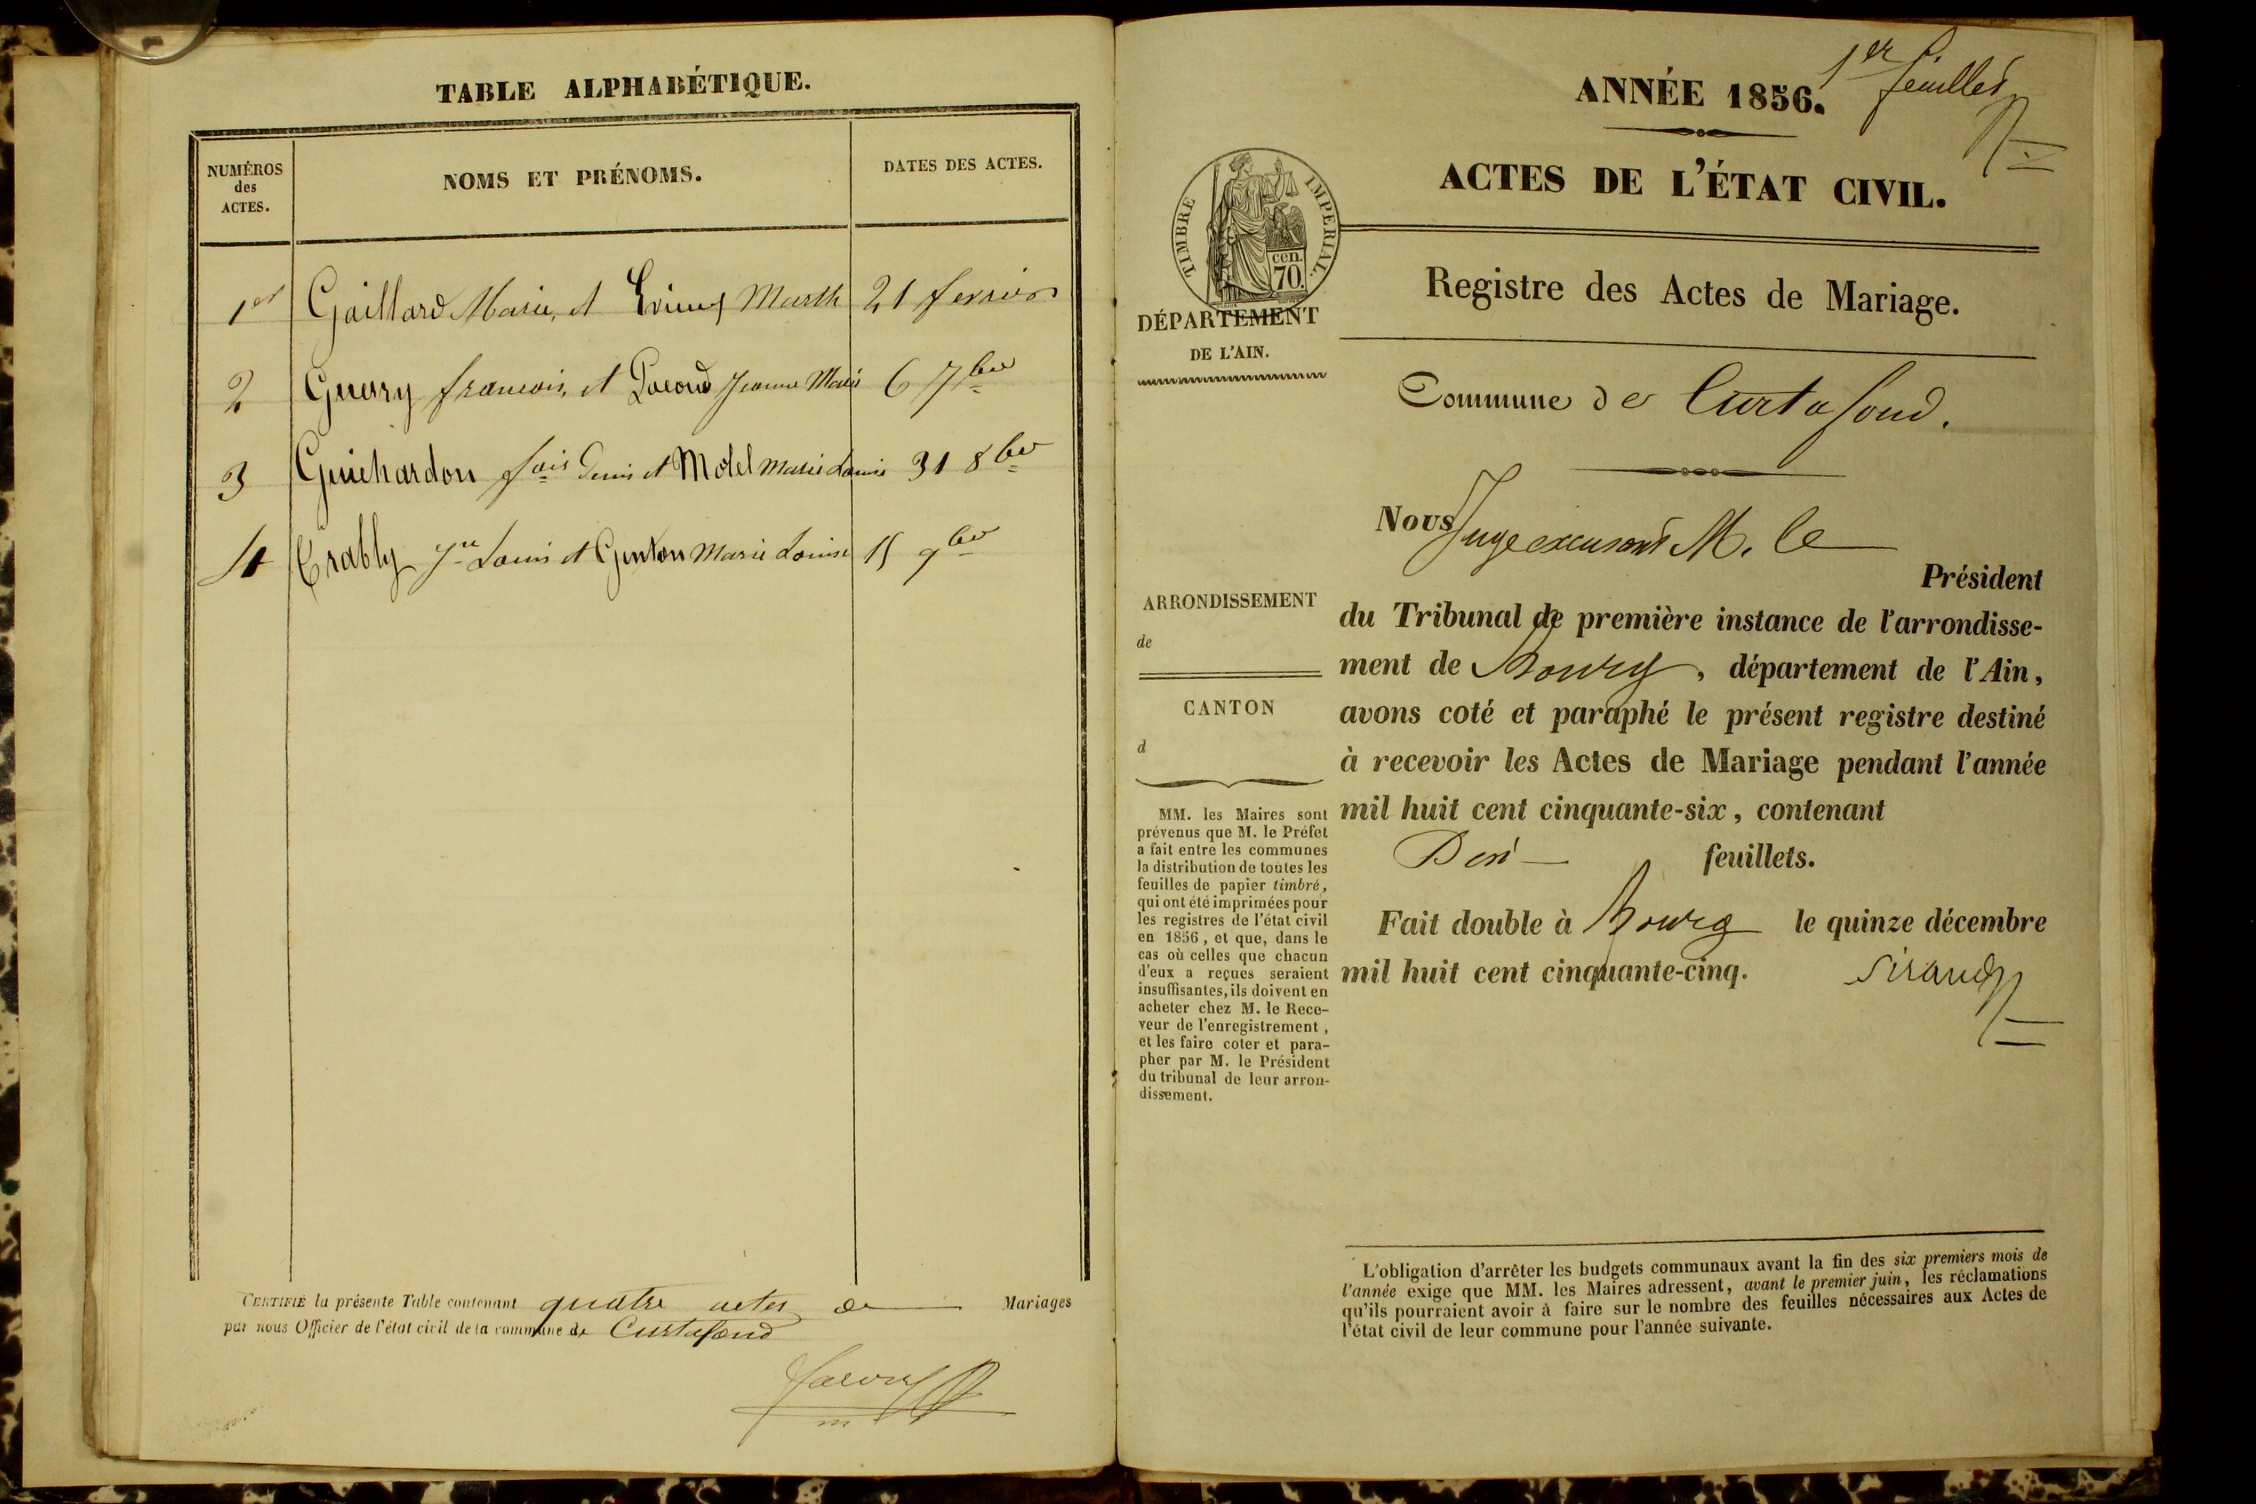 TABLE ALPHABÉTIQUE.
NUMÉROS
des
ACTES.
NOMS ET PRÉNOMS.
DATES DES ACTES.
1er Gaillard Marie, et Marth 21 fevrier
2 Guerry francois, et Jeanne Marie 6 7bre
3 Guichardon fois Denis et Morel Marie Louise 31 8bre
4 Jn Louis et Genton Marie Louise 15 9bre
CERTIFIÉ la présente Table contenant quatre actes de Mariages
par nous Officier de l'état civil de la commune de Curtafond
1er feuillet
ANNÉE 1856.
ACTES DE L'ÉTAT CIVIL.
TIMBRE IMPERIAL.
cen.
70.
DÉPARTEMENT
DE L'AIN.
Registre des Actes de Mariage.
Commune de Curtafond.
Nous Juge excusant M. le
Président
du Tribunal de première instance de l'arrondisse-
ment de Bourg, département de l'Ain,
avons coté et paraphé le présent registre destiné
à recevoir les Actes de Mariage pendant l'année
mil huit cent cinquante-six, contenant
Dix feuillets.
Fait double à Bourg le quinze décembre
mil huit cent cinquante-cinq.
Sirand
ARRONDISSEMENT
de
CANTON
d
MM. les Maires sont
prévenus que M. le Préfet
a fait entre les communes
la distribution de toutes les
feuilles de papier timbré,
qui ont été imprimées pour
les registres de l'état civil
en 1856, et que, dans le
cas où celles que chacun
d'eux a reçues seraient
insuffisantes, ils doivent en
acheter chez M. le Rece-
veur de l'enregistrement,
et les faire coter et para-
pher par M. le Président
du tribunal de leur arron-
dissement.
L'obligation d'arrêter les budgets communaux avant la fin des six premiers mois de
l'année exige que MM. les Maires adressent, avant le premier juin, les réclamations
qu'ils pourraient avoir à faire sur le nombre des feuilles nécessaires aux Actes de
l'état civil de leur commune pour l'année suivante.